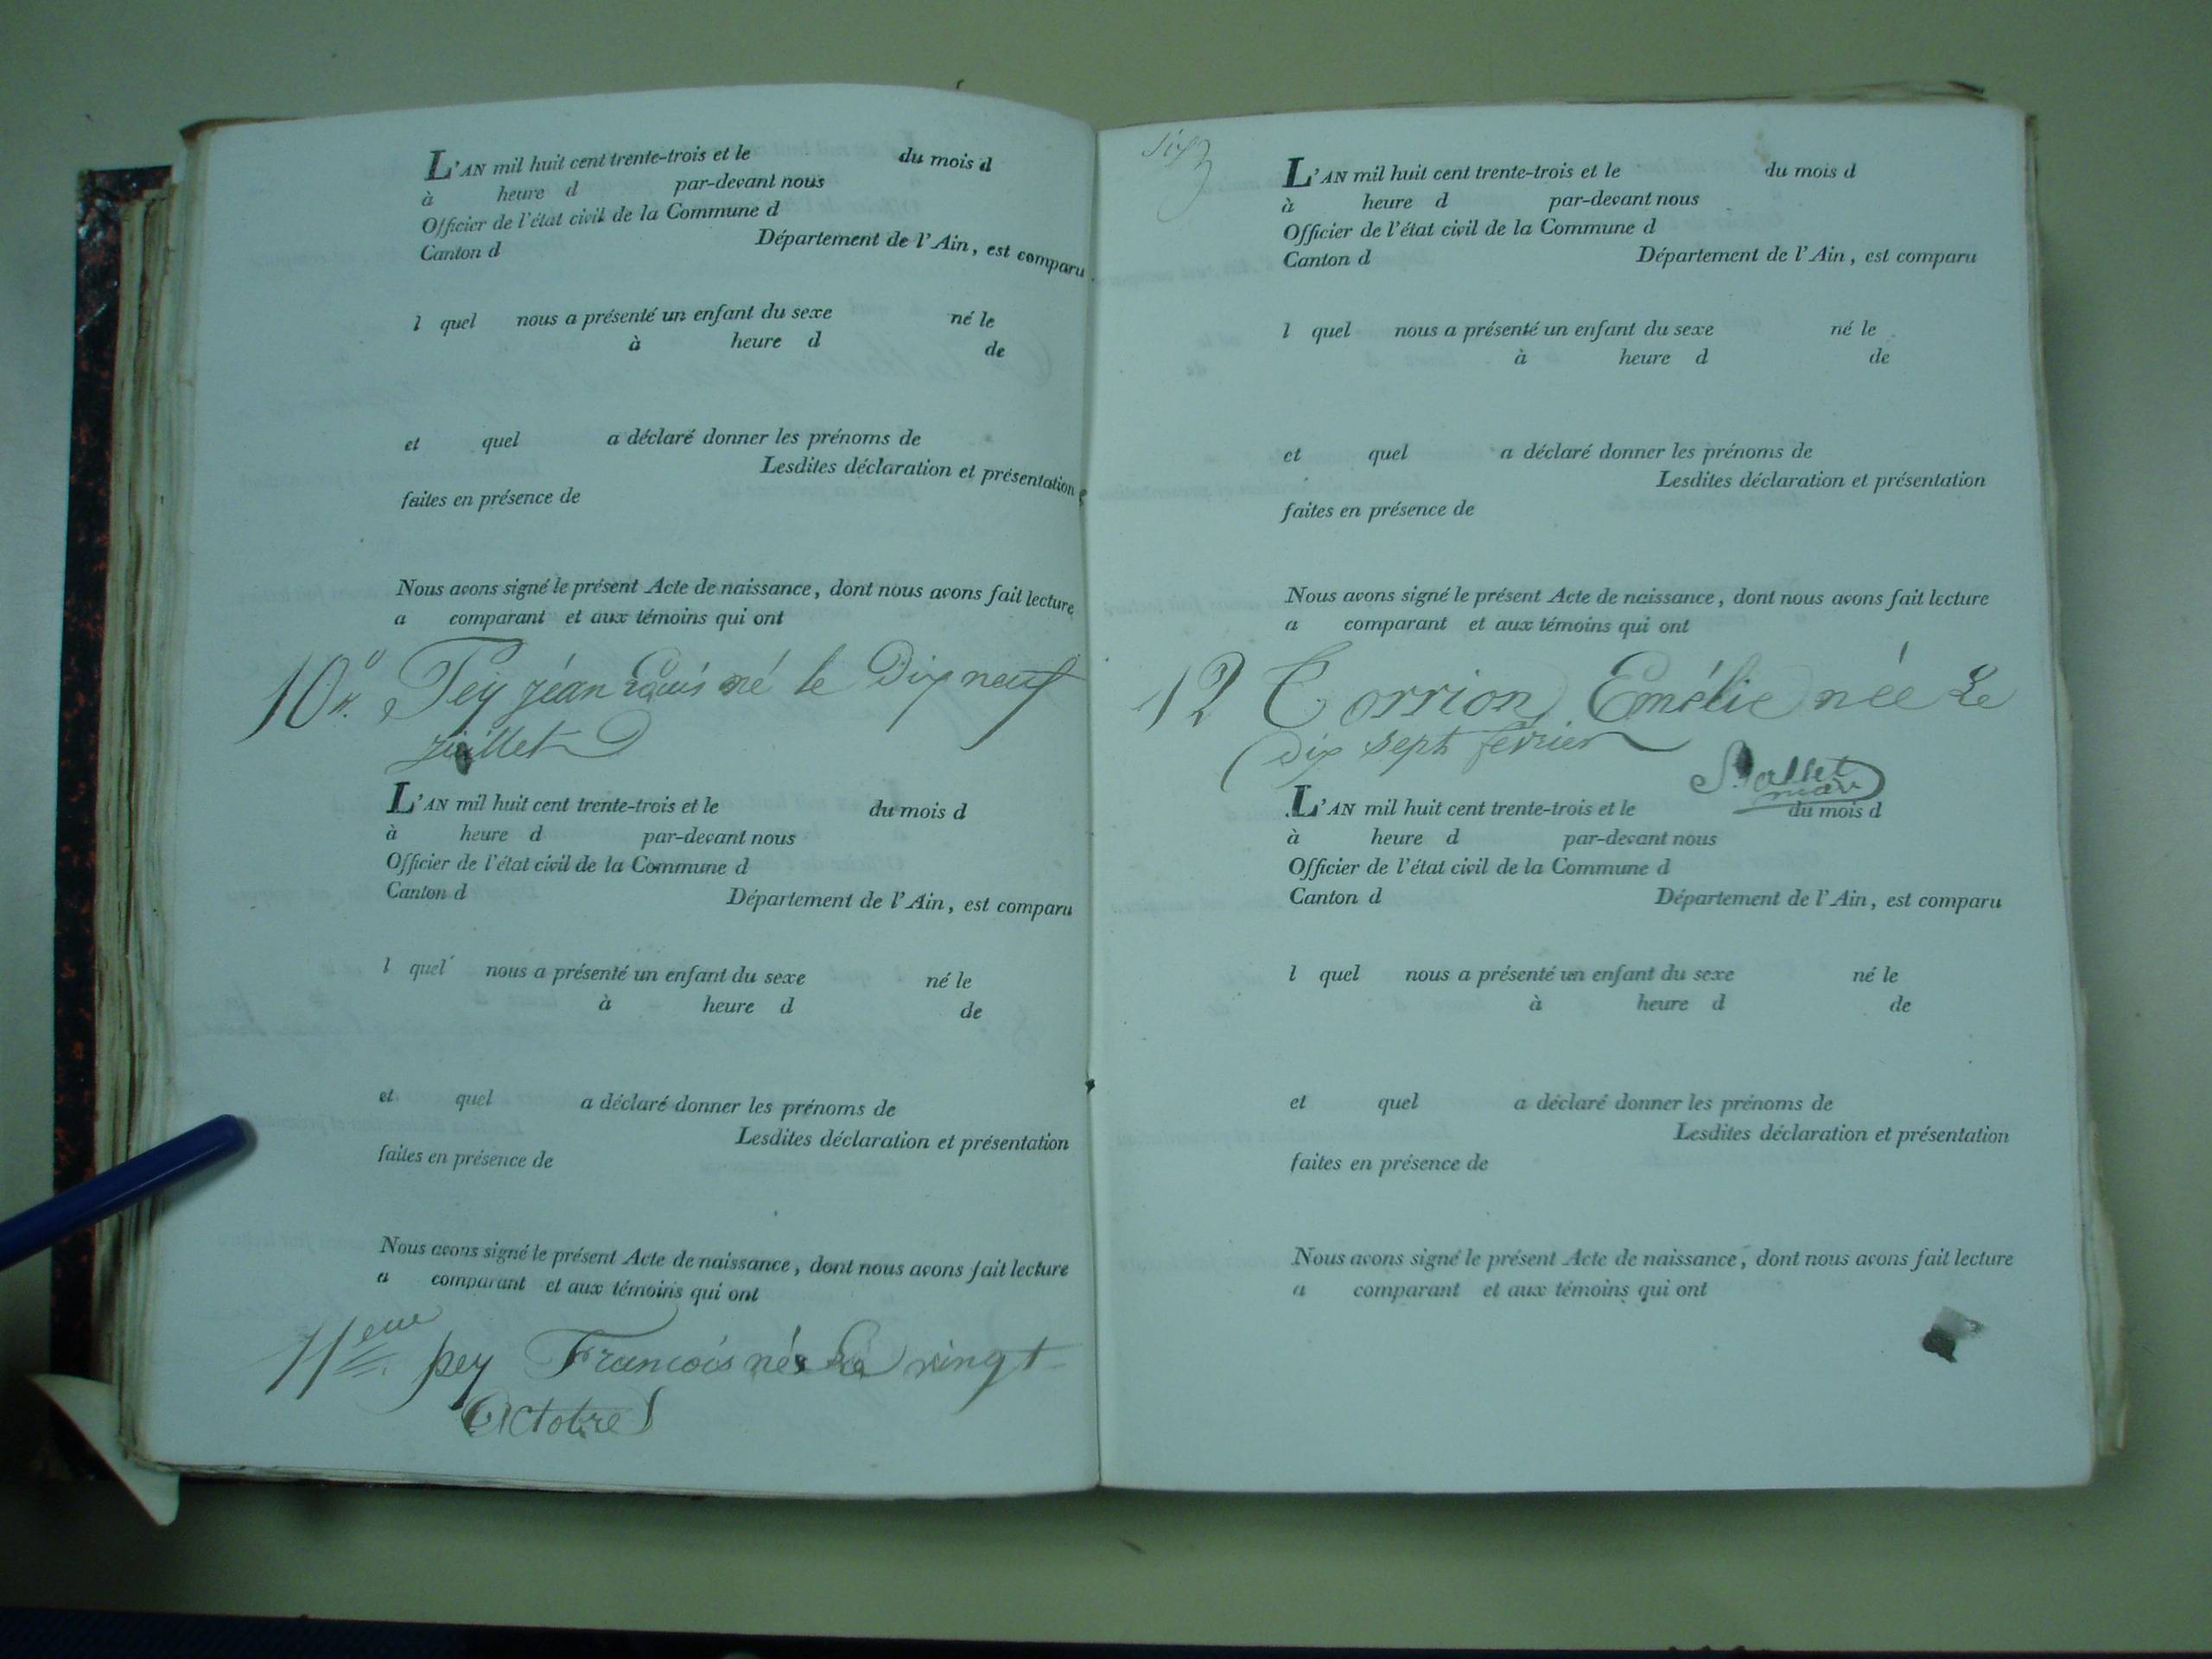 L'AN mil huit cent trente-trois et le du mois d
à heure d par-devant nous
Officier de l'état civil de la Commune d
Canton d Département de l'Ain, est comparu
l quel nous a présenté un enfant du sexe né le
à heure d de
et quel a déclaré donner les prénoms de
Lesdites déclaration et présentation
faites en présence de
Nous avons signé le présent Acte de naissance, dont nous avons fait lecture
a comparant et aux témoins qui ont
10° Pey jéan Louis né le Dix neuf
juillet
L'AN mil huit cent trente-trois et le du mois d
à heure d par-devant nous
Officier de l'état civil de la Commune d
Canton d Département de l'Ain, est comparu
l quel nous a présenté un enfant du sexe né le
à heure d de
et quel a déclaré donner les prénoms de
Lesdites déclaration et présentation
faites en présence de
Nous avons signé le présent Acte de naissance, dont nous avons fait lecture
a comparant et aux témoins qui ont
11eme pey Francois né Le vingt
Octobre
L'AN mil huit cent trente-trois et le du mois d
à heure d par-devant nous
Officier de l'état civil de la Commune d
Canton d Département de l'Ain, est comparu
l quel nous a présenté un enfant du sexe né le
à heure d de
et quel a déclaré donner les prénoms de
Lesdites déclaration et présentation
faites en présence de
Nous avons signé le présent Acte de naissance, dont nous avons fait lecture
a comparant et aux témoins qui ont
12 Corrion Emélie née Le
dix sept fevrier
L'AN mil huit cent trente-trois et le du mois d
à heure d par-devant nous
Officier de l'état civil de la Commune d
Canton d Département de l'Ain, est comparu
l quel nous a présenté un enfant du sexe né le
à heure d de
et quel a déclaré donner les prénoms de
Lesdites déclaration et présentation
faites en présence de
Nous avons signé le présent Acte de naissance, dont nous avons fait lecture
a comparant et aux témoins qui ont